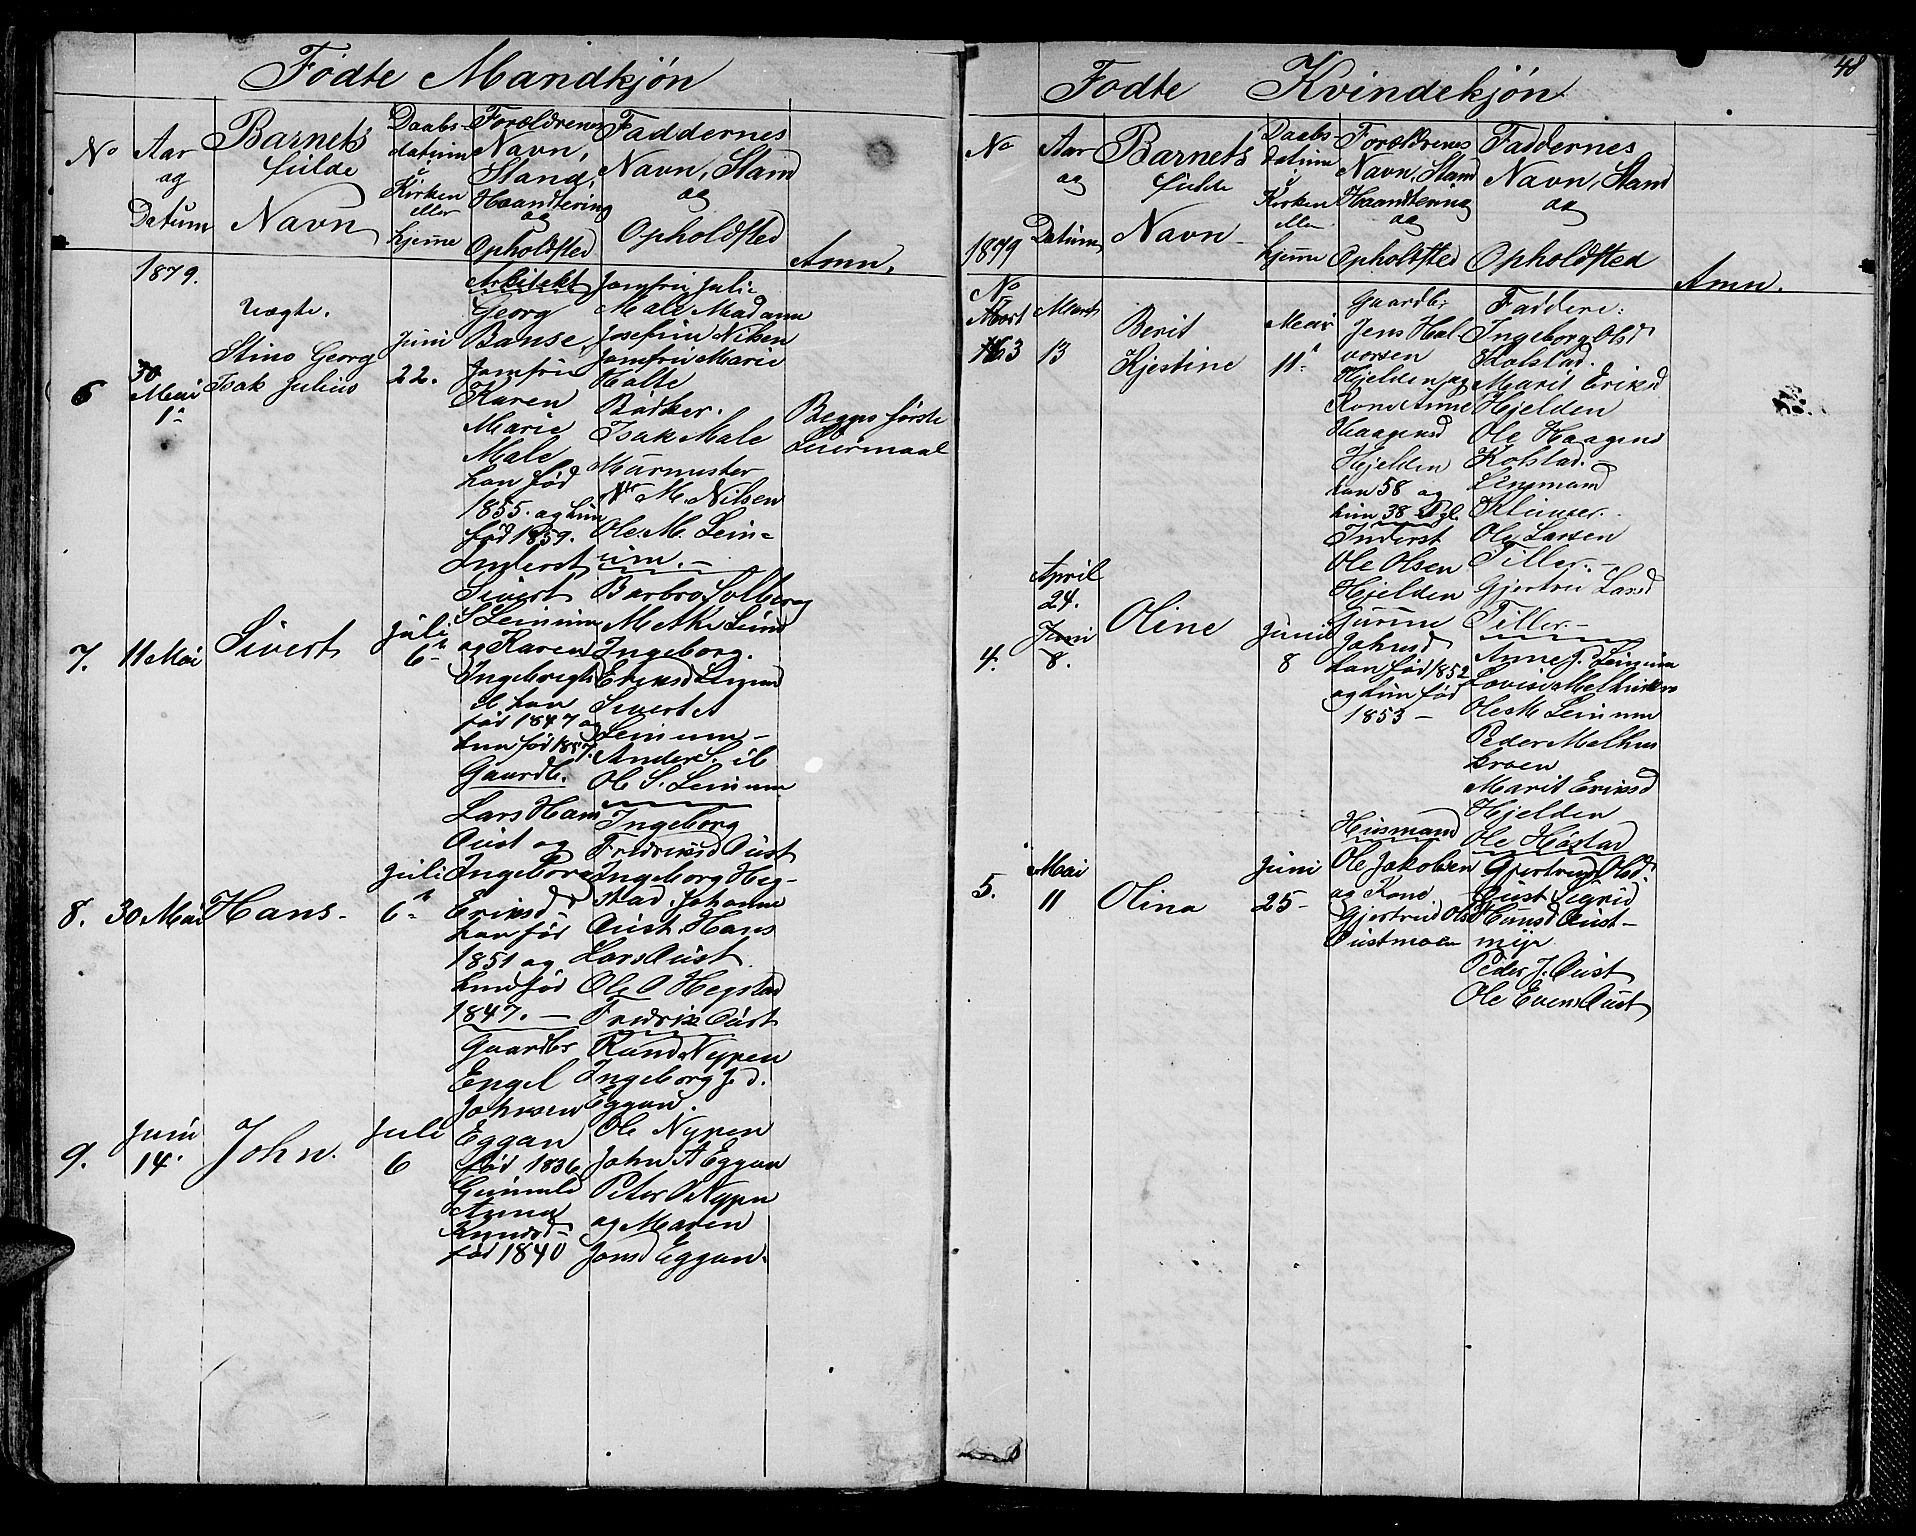 Fødte Mandkjøn
No
Aar
og
Datum
Barnets
fulde
Navn
Daabs-
datum
i
Kirken
eller
hjemme
Forældrenes
Navn,
Stand,
Haandtering
og
Opholdsted
Faddernes
Navn, Stand
og
Opholdsted
Anm.
1879.
6
30
Mai
1.
Uægte.
Stino Georg
Isak Julius
Juni
22.
Arkitekt
Georg
Banse,
Jomfru
Karen
Marie
Male
han fød
1855. og hun
fød 1859.
Jomfru Julie
Male Madame
Josefine Nilsen
Jomfru Marie
Holte
Bødker.
Isak Male
Murmester
M. Nilsen
Ole M. Lein-
um.-
Begges første
Leiermaal
7.
11 Mai
Sivert
Juli
6
Inderst
Sivert
S Leinum
og Karen
Ingebrigts
d. han
fød 1847 og
hun fød 1857.
Barbro Solberg
Ingeborg
Eriksd Leinum
Sivert A
Leinum-
Anders S. ib
Ole S. Leinum
8.
30 Mai
Hans-
Juli
6
Gaardb.
Lars Hans
Øust og
Ingeborg
Eriksd
han fød
1851 og
hun fød
1847.-
Ingeborg
Fredriksd Øust
Ingeborg Heg-
stad. Johanne
Øust. Hans
Lars Øust
Ole O Hegstad
Fredrik Øust
9.
Juni
14.
John.
Juli
6
Gaardbr
Engel
Johnsen
Eggan
fød 1836
Anne
Knudsd-
fød 1840
Rand. Nypen
Ingeborg J. d.
Eggan.
Ole Nypen
John A Eggan
Peter O Nypen
og Maren
Jonsd Eggan.
48
Fødte Kvindekjøn
No
1879
Aar
og
Datum
Barnets
fulde
Navn
Daabs-
datum
i
Kirken
eller
hjemme
Forældrenes
Navn, Stand
Haandtering
og
Opholdsted
Faddernes
Navn, Stand
og
Opholdsted
Anm.
No
3
Marts
13
Berit
Kjestine
Mai
11
Gaardb.
Jens Hal
vorsen
Hjelden og
Kone Anne
Haagensd
Hjelden
han 58 og
hun 38
Faddere:
Ingeborg Olsd
Kolstad.
Marit Eriksd
Hjelden
Ole Haagens
Kolstad.-
Lensmand
Klüwer.
Ole Larsen
Tiller.-
Gjertru Larsd
Tiller-
4.
April
24.
Juni
8.
Oline
Juni
8
Inderst
Ole Olsen
Hjelden
Gurine
Johnsd
han fød 1852
og hun fød
1853-
Anne J. d. Leinum
Lovise Melhuskro
Ole M Leinum
Peder Melhus
kroen
Marit Eriksd
Hjelden
Ole Høstad
5.
Mai
11
Olina
Juni
25-
Husmand
Ole Jakobsen
og Kone
Gjertrud Olsd
Øustmoen
Gjertrud Olsd.
Øust Sigrid
Hansd Øust-
myr
Peder J. Øust
Ole Evens Øust